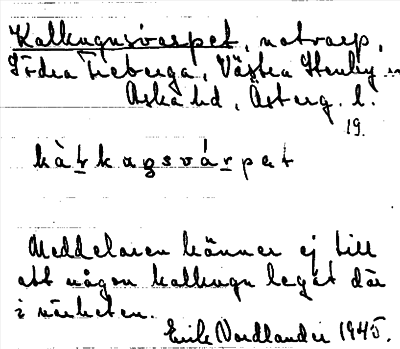 Kalkugnsvarpet, notvarp,
Södra Freberga, Västra Stenby
Aska hd, Österg. l.
19.
Meddelaren känner ej till
att någon kalkugn legat där
i närheten.
Erik Nordlander 1945.